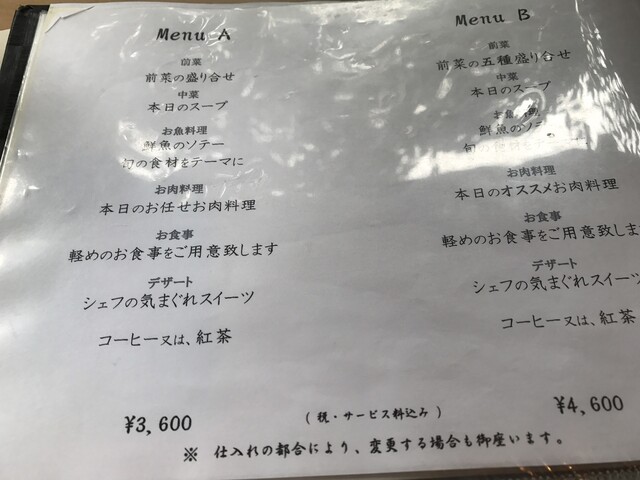 Menu A
前菜
前菜の盛り合せ
中菜
本日のスープ
お魚料理
鮮魚のソテー
旬の食材をテーマに
お肉料理
本日のお任せお肉料理
お食事
軽めのお食事をご用意致します
デザート
シェフの気まぐれスイーツ
コーヒー又は、紅茶
¥3,600
Menu B
前菜
前菜の五種盛り合せ
中菜
本日のスープ
お魚
鮮魚のソテー
旬の食材をテーマ
お肉料理
本日のオススメお肉料理
お食事
軽めのお食事をご用意致しま
デザート
シェフの気まぐれスイーツ
コーヒー又は、紅茶
¥4,600
(税・サービス料込み)
※ 仕入れの都合により、変更する場合も御座います。